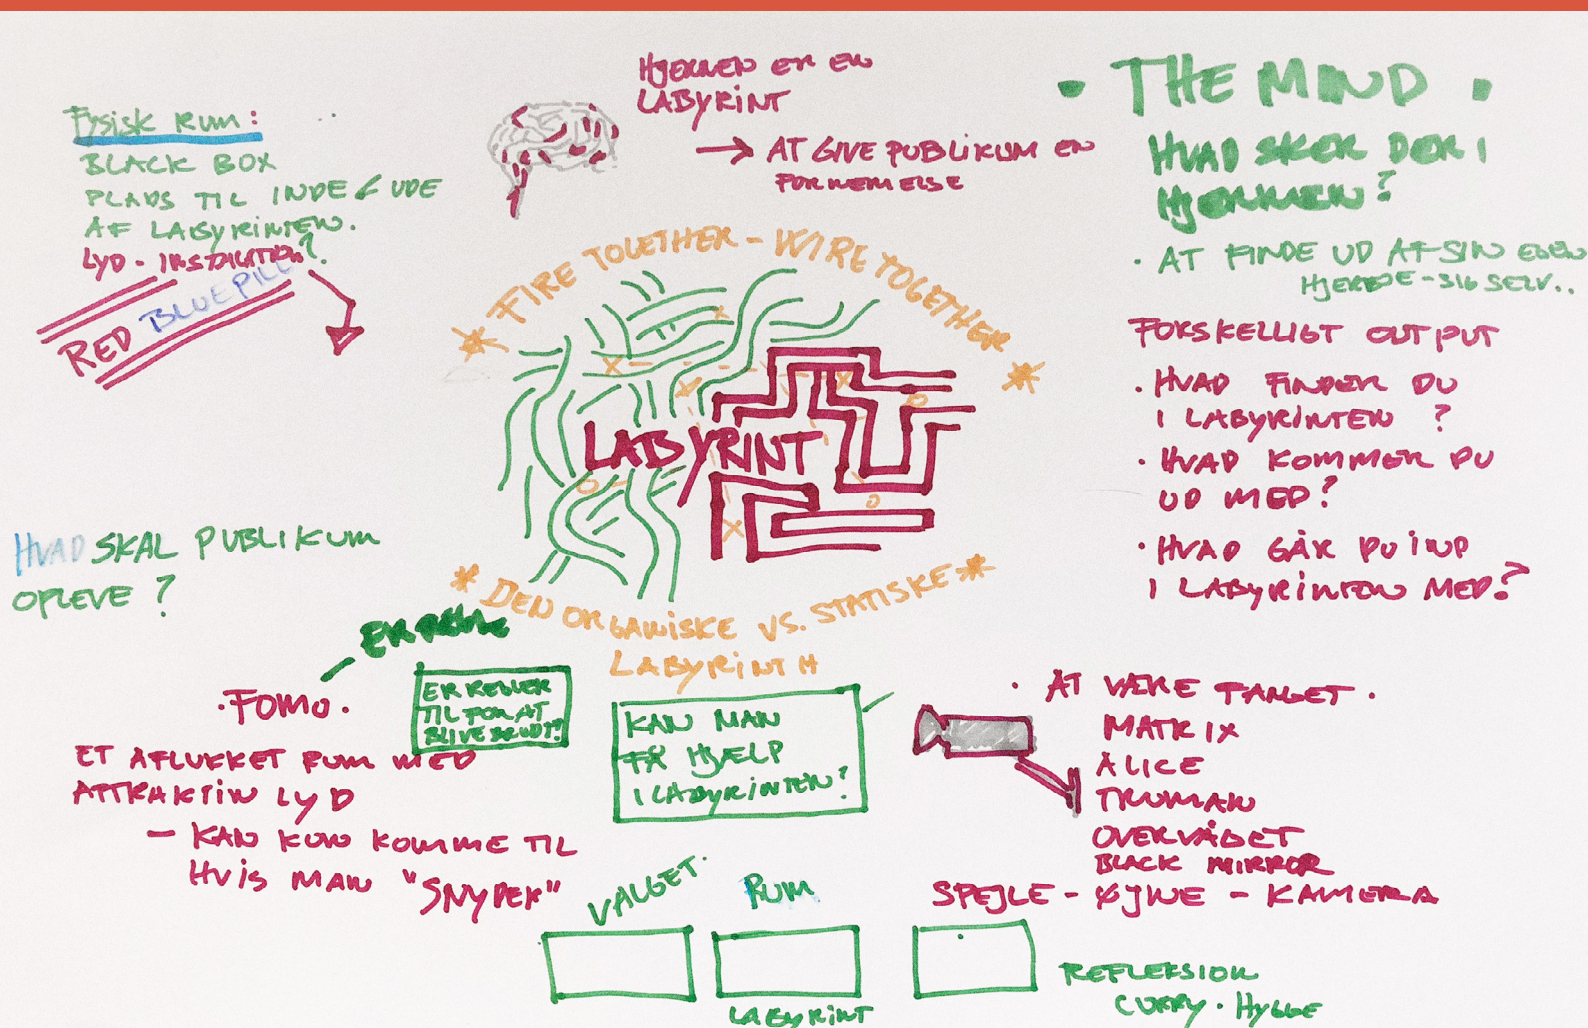 Fysisk RUM:
BLACK BOX
PLADS TIL INDE & UDE
AF LABYRINTEN.
LYD - INSTALATION?
RED BLUE PILL
HJERNEN ER EN
LABYRINT
→ AT GIVE PUBLIKUM EN
FORNEMELSE
• THE MIND •
HVAD SKER DER I
HJERNEN?
• AT FINDE UD AF SIN EGEN
HJERNE - SIG SELV..
FORSKELLIGT OUTPUT
• HVAD FINDER DU
I LABYRINTEN ?
• HVAD KOMMER DU
UD MED?
• HVAD GÅR DU IND
I LABYRINTEN MED?
* FIRE TOGETHER - WIRE TOGETHER *
LABYRINT
* DEN ORGANISKE VS. STATISKE *
LABYRINTH
HVAD SKAL PUBLIKUM
OPLEVE ?
ER REGLER
• FOMO •
ER REGLER
TIL FOR AT
BLIVE BRUDT?
ET AFLUKKET RUM MED
ATTRAKTIV LYD
- KAN KUN KOMME TIL
HVIS MAN "SNYDER"
KAN MAN
FÅ HJÆLP
I LABYRINTEN?
• AT VÆRE FANGET •
MATRIX
ALICE
TRUMAN
OVERVÅGET
BLACK MIRROR
SPEJLE - ØJNE - KAMERA
VALGET.
RUM
LABYRINT
REFLEKSION
CURRY • HYGGE